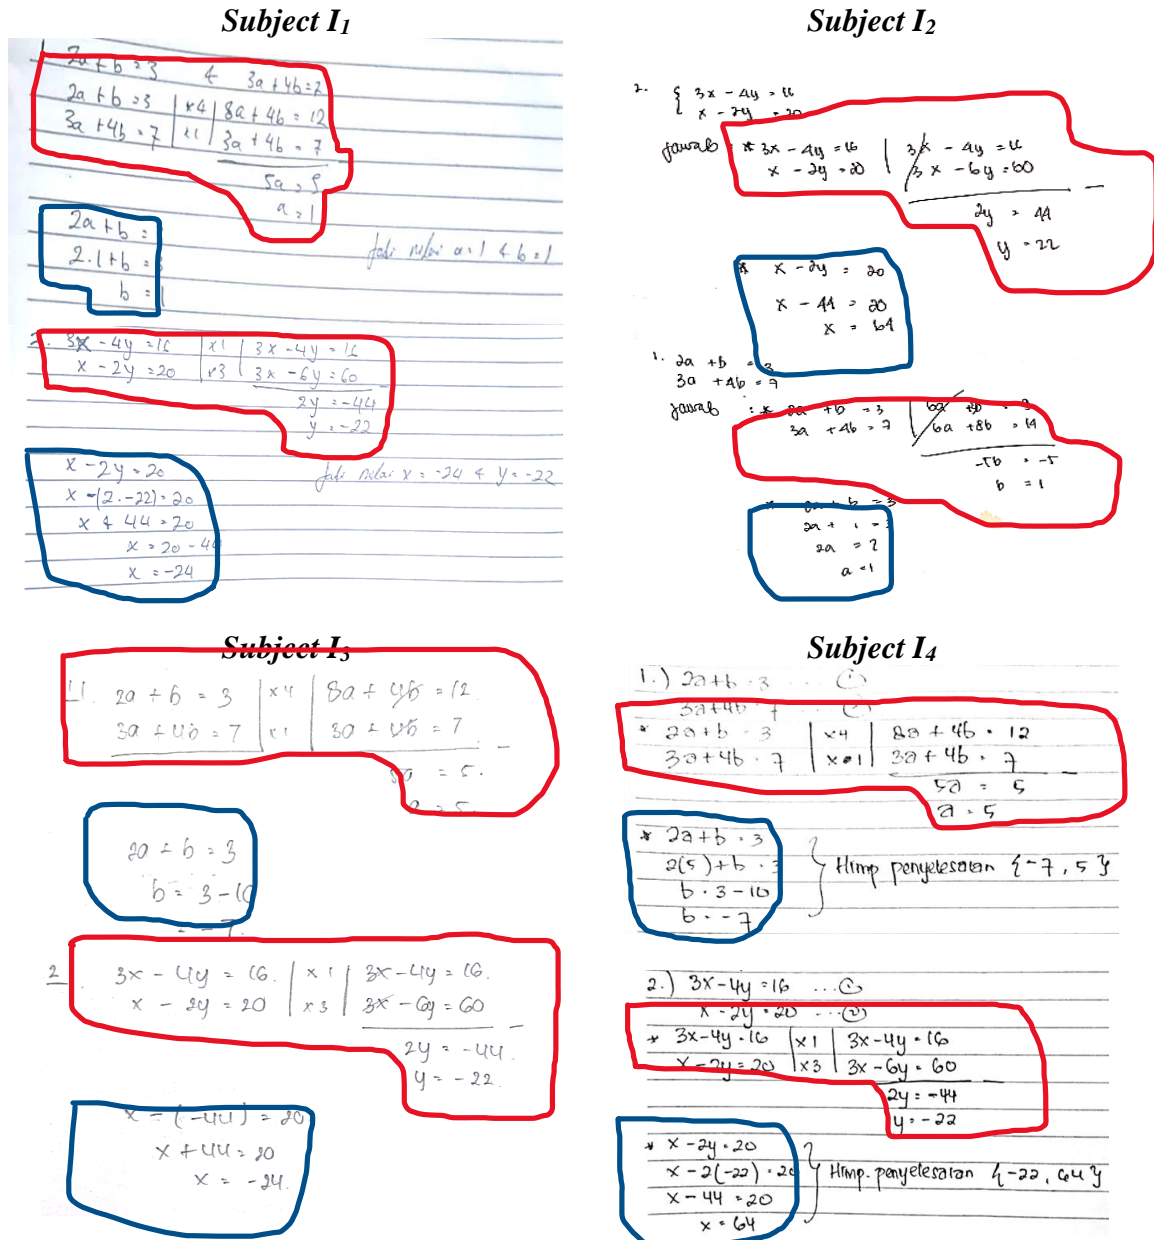 Subject I1
2a + b = 3 & 3a + 4b = 7
2a + b = 3 | x4 | 8a + 4b = 12
3a + 4b = 7 | x1 | 3a + 4b = 7
5a = 5
a = 1
2a + b =
2.1 + b = 3
b = 1
Jadi nilai a = 1 & b = 1
2. 3x - 4y = 16 | x1 | 3x - 4y = 16
x - 2y = 20 | x3 | 3x - 6y = 60 -
2y = -44
y = -22
x - 2y = 20
x - (2.-22) = 20
x + 44 = 20
x = 20 - 44
x = -24
Jadi nilai x = -24 & y = -22
Subject I2
2. { 3x - 4y = 16
x - 2y = 20
jawab : * 3x - 4y = 16 | 3x - 4y = 16
x - 2y = 20 | 3x - 6y = 60 -
2y = 44
y = 22
* x - 2y = 20
x - 44 = 20
x = 64
1. 2a + b = 3
3a + 4b = 7
jawab : * 2a + b = 3 | 6a + 3b = 9
3a + 4b = 7 | 6a + 8b = 14
-5b = -5
b = 1
* 2a + b = 3
2a + 1 = 3
2a = 2
a = 1
Subject I3
1. 2a + b = 3 | x4 | 8a + 4b = 12
3a + 4b = 7 | x1 | 3a + 4b = 7 -
5a = 5.
a = 5.
2a + b = 3
b = 3 - 10
= -7
2 3x - 4y = 16. | x1 | 3x - 4y = 16.
x - 2y = 20 | x3 | 3x - 6y = 60 -
2y = -44.
y = -22.
x - (-44) = 20
x + 44 = 20
x = -24.
Subject I4
1.) 2a + b = 3 ... (1)
3a + 4b = 7 ... (2)
* 2a + b = 3 | x4 | 8a + 4b = 12
3a + 4b = 7 | x1 | 3a + 4b = 7 -
5a = 5
a = 5
* 2a + b = 3
2(5) + b = 3
b = 3 - 10
b = -7
Himp penyelesaian {-7, 5}
2.) 3x - 4y = 16 ... (1)
x - 2y = 20 ... (2)
* 3x - 4y = 16 | x1 | 3x - 4y = 16
x - 2y = 20 | x3 | 3x - 6y = 60 -
2y = -44
y = -22
* x - 2y = 20
x - 2(-22) = 20
x - 44 = 20
x = 64
Himp. penyelesaian {-22, 64}